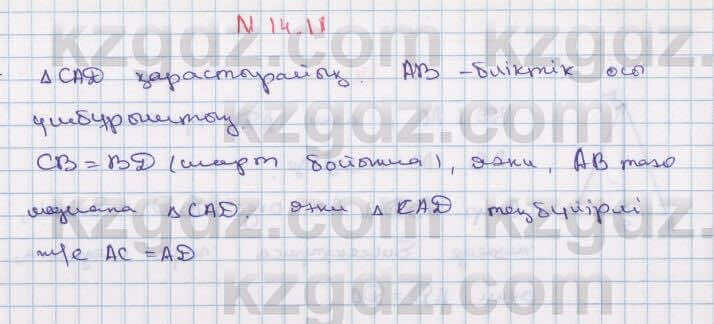 N 14.18
△CAD қарастырайық. AB -биіктік осы
үшбұрыштың.
CB = BD (шарт бойынша), яғни, AB тағо
медиана △CAD. яғни △CAD теңбүйірлі
ж/е AC = AD
kzgdz.com
kzgdz.com
kzgdz.com
kzgdz.com